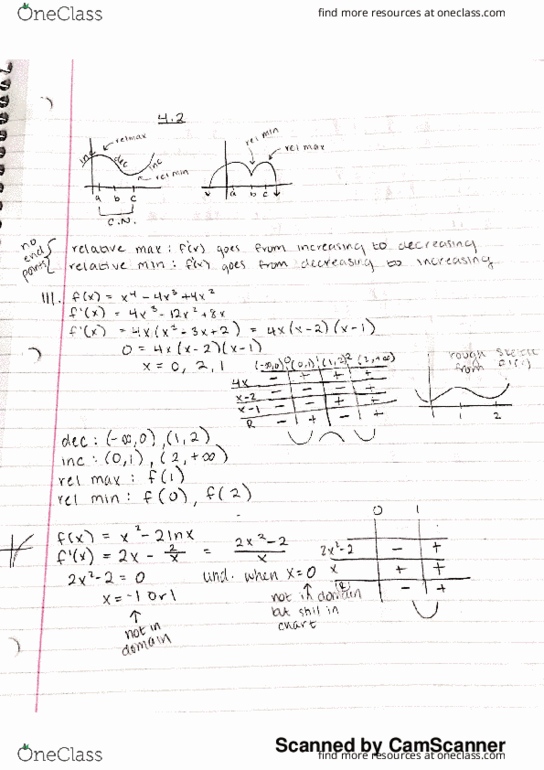 OneClass
find more resources at oneclass.com
4.2
rel max
inc
dec
inc
rel min
a b c
C.N.
rel min
rel max
a b c
no end points
relative max: f'(x) goes from increasing to decreasing
relative min: f'(x) goes from decreasing to increasing
111. f(x) = x⁴ - 4x³ + 4x²
f'(x) = 4x³ - 12x² + 8x
f'(x) = 4x(x² - 3x + 2) = 4x(x-2)(x-1)
0 = 4x(x-2)(x-1)
x = 0, 2, 1
(-∞,0) 0 (0,1) 1 (1,2) 2 (2,+∞)
4x - + + +
x-2 - - - +
x-1 - - + +
R - + - +
rough sketch from f'( )
1 2
dec: (-∞,0), (1,2)
inc: (0,1), (2,+∞)
rel max: f(1)
rel min: f(0), f(2)
f(x) = x² - 2lnx
f'(x) = 2x - 2/x = 2x²-2/x
2x²-2 = 0 und. when x=0
x = -1 or 1
not in domain
not in domain but still in chart
0 1
2x²-2 - +
x + +
- +
Scanned by CamScanner
OneClass
find more resources at oneclass.com